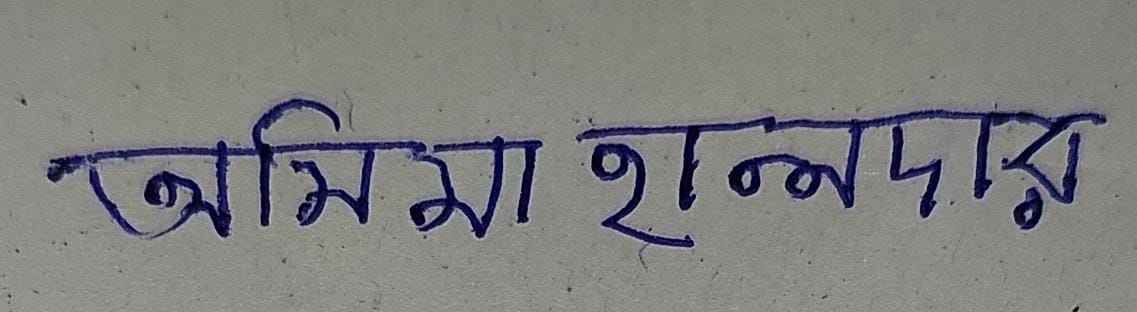 অসিমা হালদার